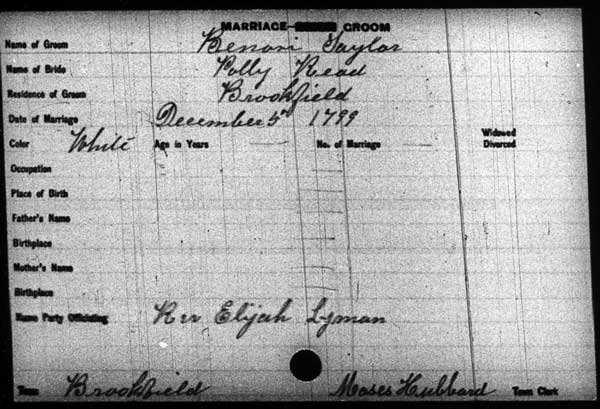 MARRIAGE GROOM
Name of Groom Benoni Taylor
Name of Bride Polly Read
Residence of Groom Brookfield
Date of Marriage December 5th 1799
Color White Age in Years — No. of Marriage — Widowed
Divorced
Occupation
Place of Birth
Father's Name
Birthplace
Mother's Name
Birthplace
Name Party Officiating Rev Elijah Lyman
Town Brookfield Moses Hubbard Town Clerk